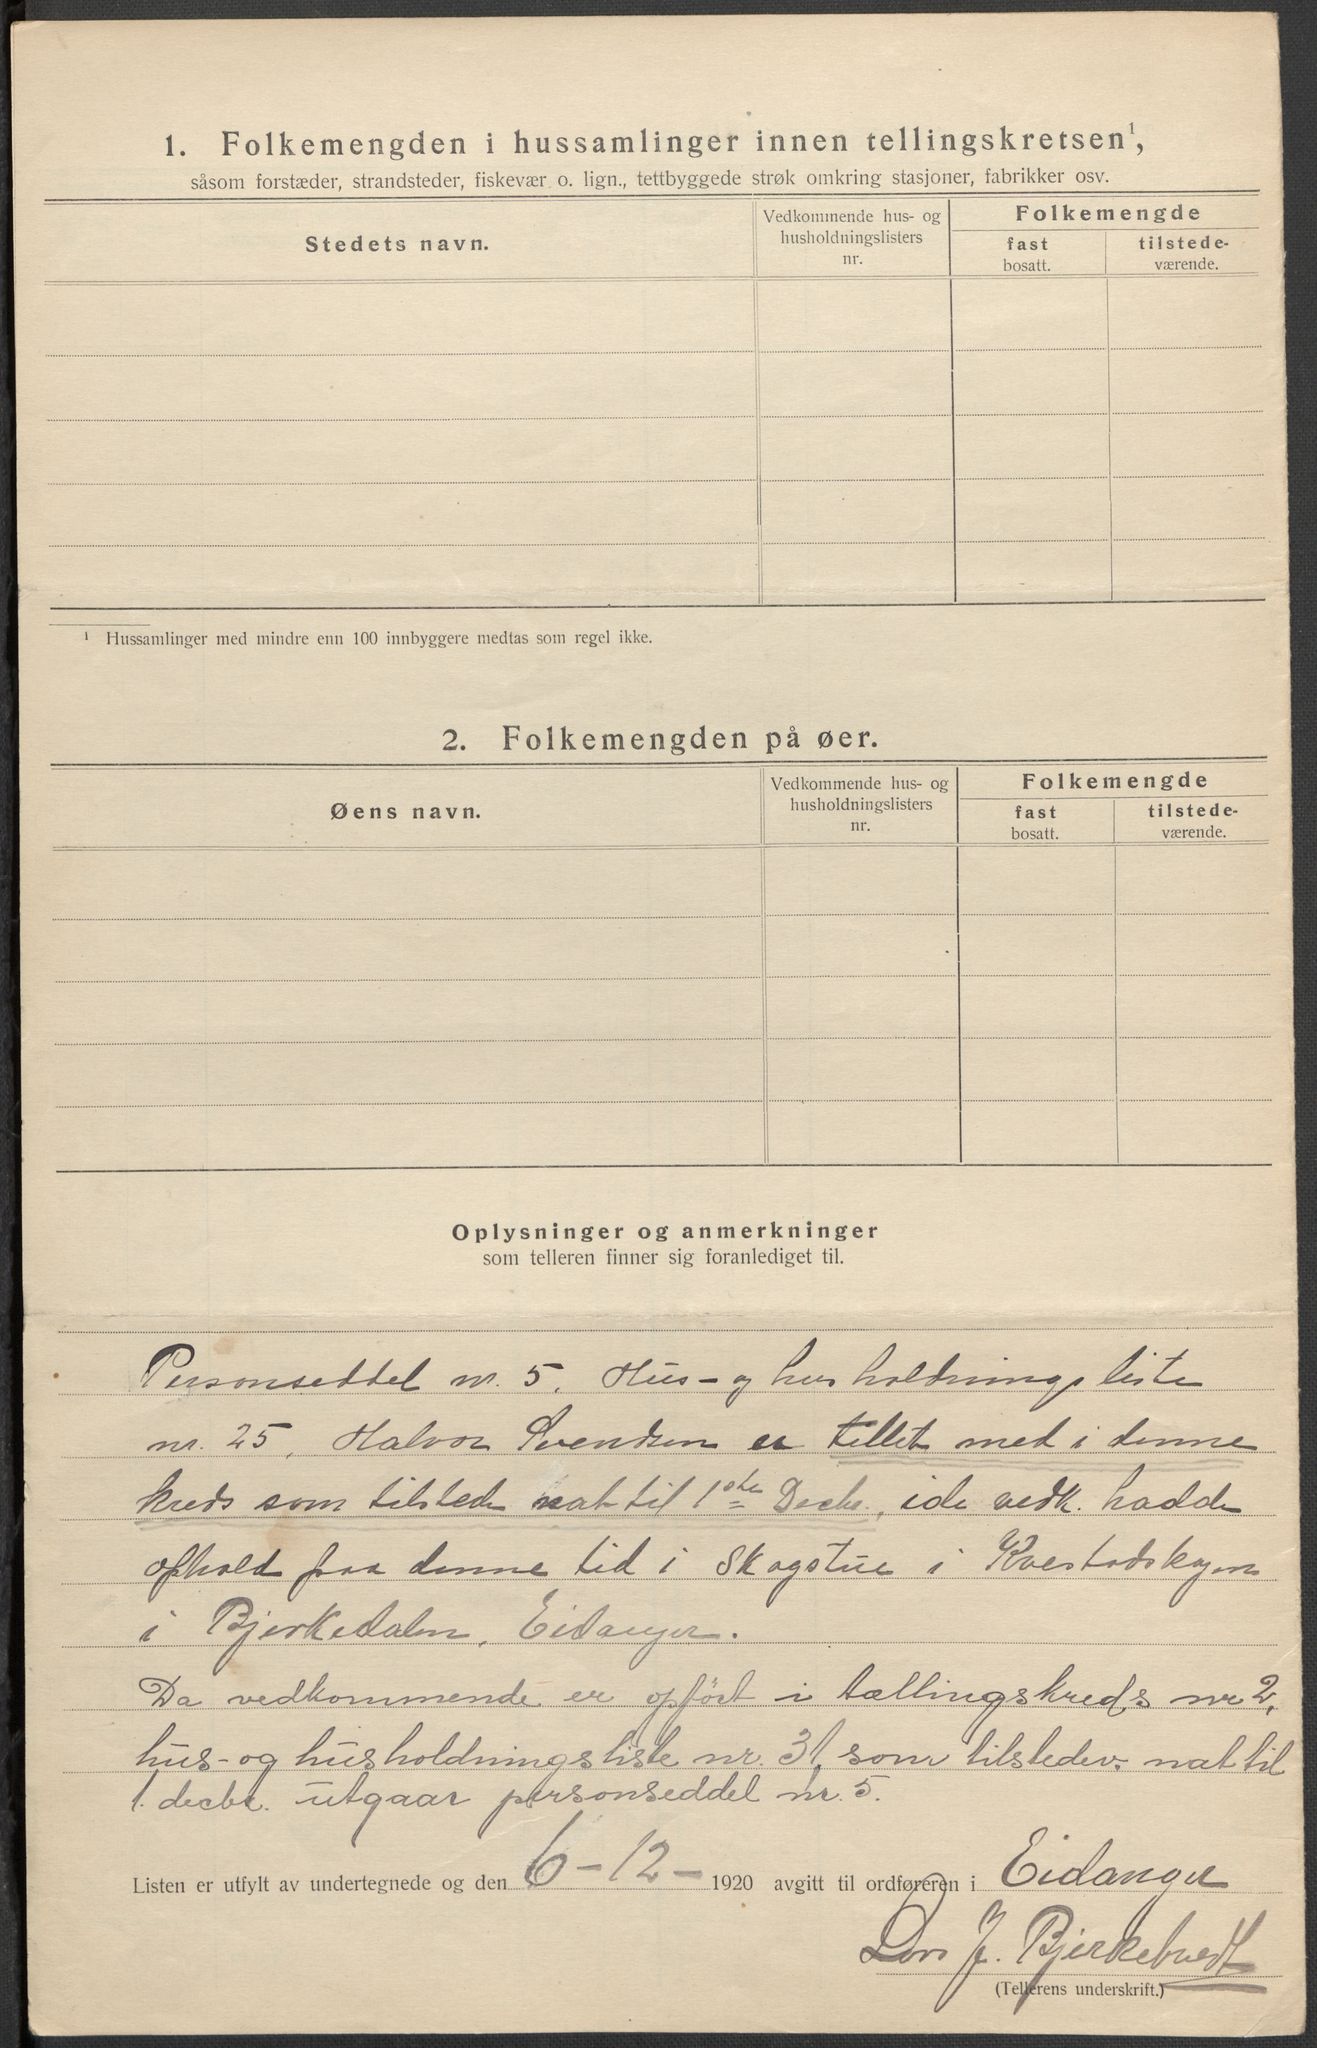 1. Folkemengden i hussamlinger innen tellingskretsen¹,
såsom forstæder, strandsteder, fiskevær o. lign., tettbyggede strøk omkring stasjoner, fabrikker osv.
Stedets navn.
Vedkommende hus- og
husholdningslisters
nr.
Folkemengde
fast
bosatt.
tilstede-
værende.
¹ Hussamlinger med mindre enn 100 innbyggere medtas som regel ikke.
2. Folkemengden på øer.
Øens navn.
Vedkommende hus- og
husholdningslisters
nr.
Folkemengde
fast
bosatt.
tilstede-
værende.
Oplysninger og anmerkninger
som telleren finner sig foranlediget til.
Personseddel nr. 5. Hus- og husholdningsliste
nr. 25, Halvor Svendsen er tellet med i denne
kreds som tilstede nat til 1ste Decbr., ide vedk. hadde
ophold paa denne tid i Skogstue i
i Bjerkedalen, Eidanger.
Da vedkommende er opført i tællingskreds nr 2,
hus- og husholdningsliste nr. 31, som tilstedev. nat til
1. decbr. utgaar personseddel nr. 5.
Listen er utfylt av undertegnede og den 6-12- 1920 avgitt til ordføreren i Eidanger
J.
(Tellerens underskrift.)